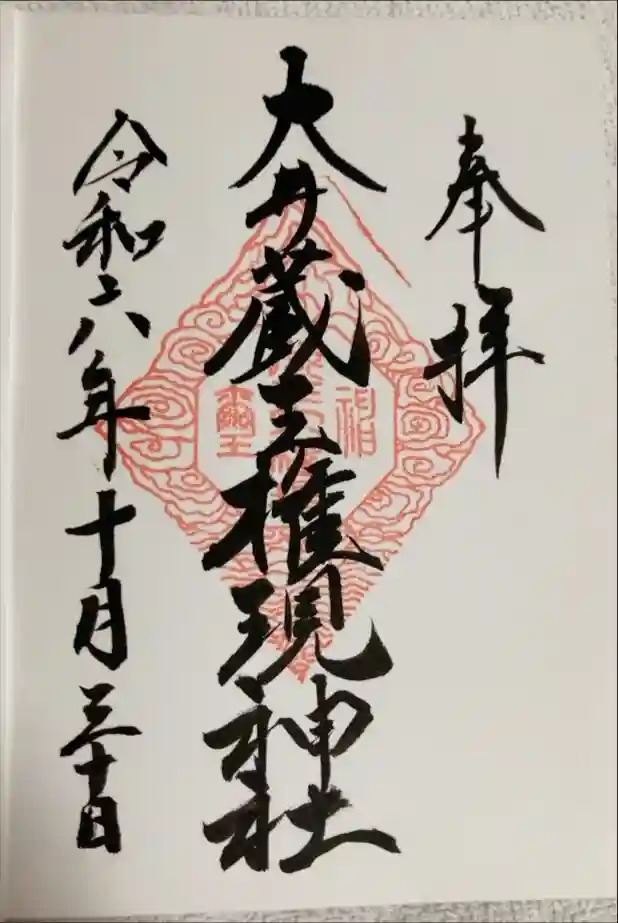 奉拝
大井蔵王権現神社
令和六年十月三十日